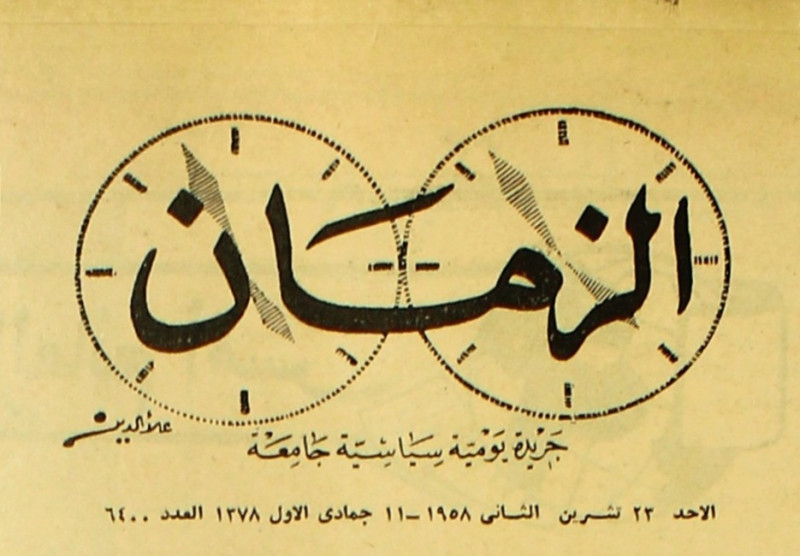 الزمان
علاءالدين
جريدة يومية سياسية جامعة
الاحد ٢٣ تشرين الثانى ١٩٥٨ – ١١ جمادى الاول ١٣٧٨ العدد ٦٤٠٠